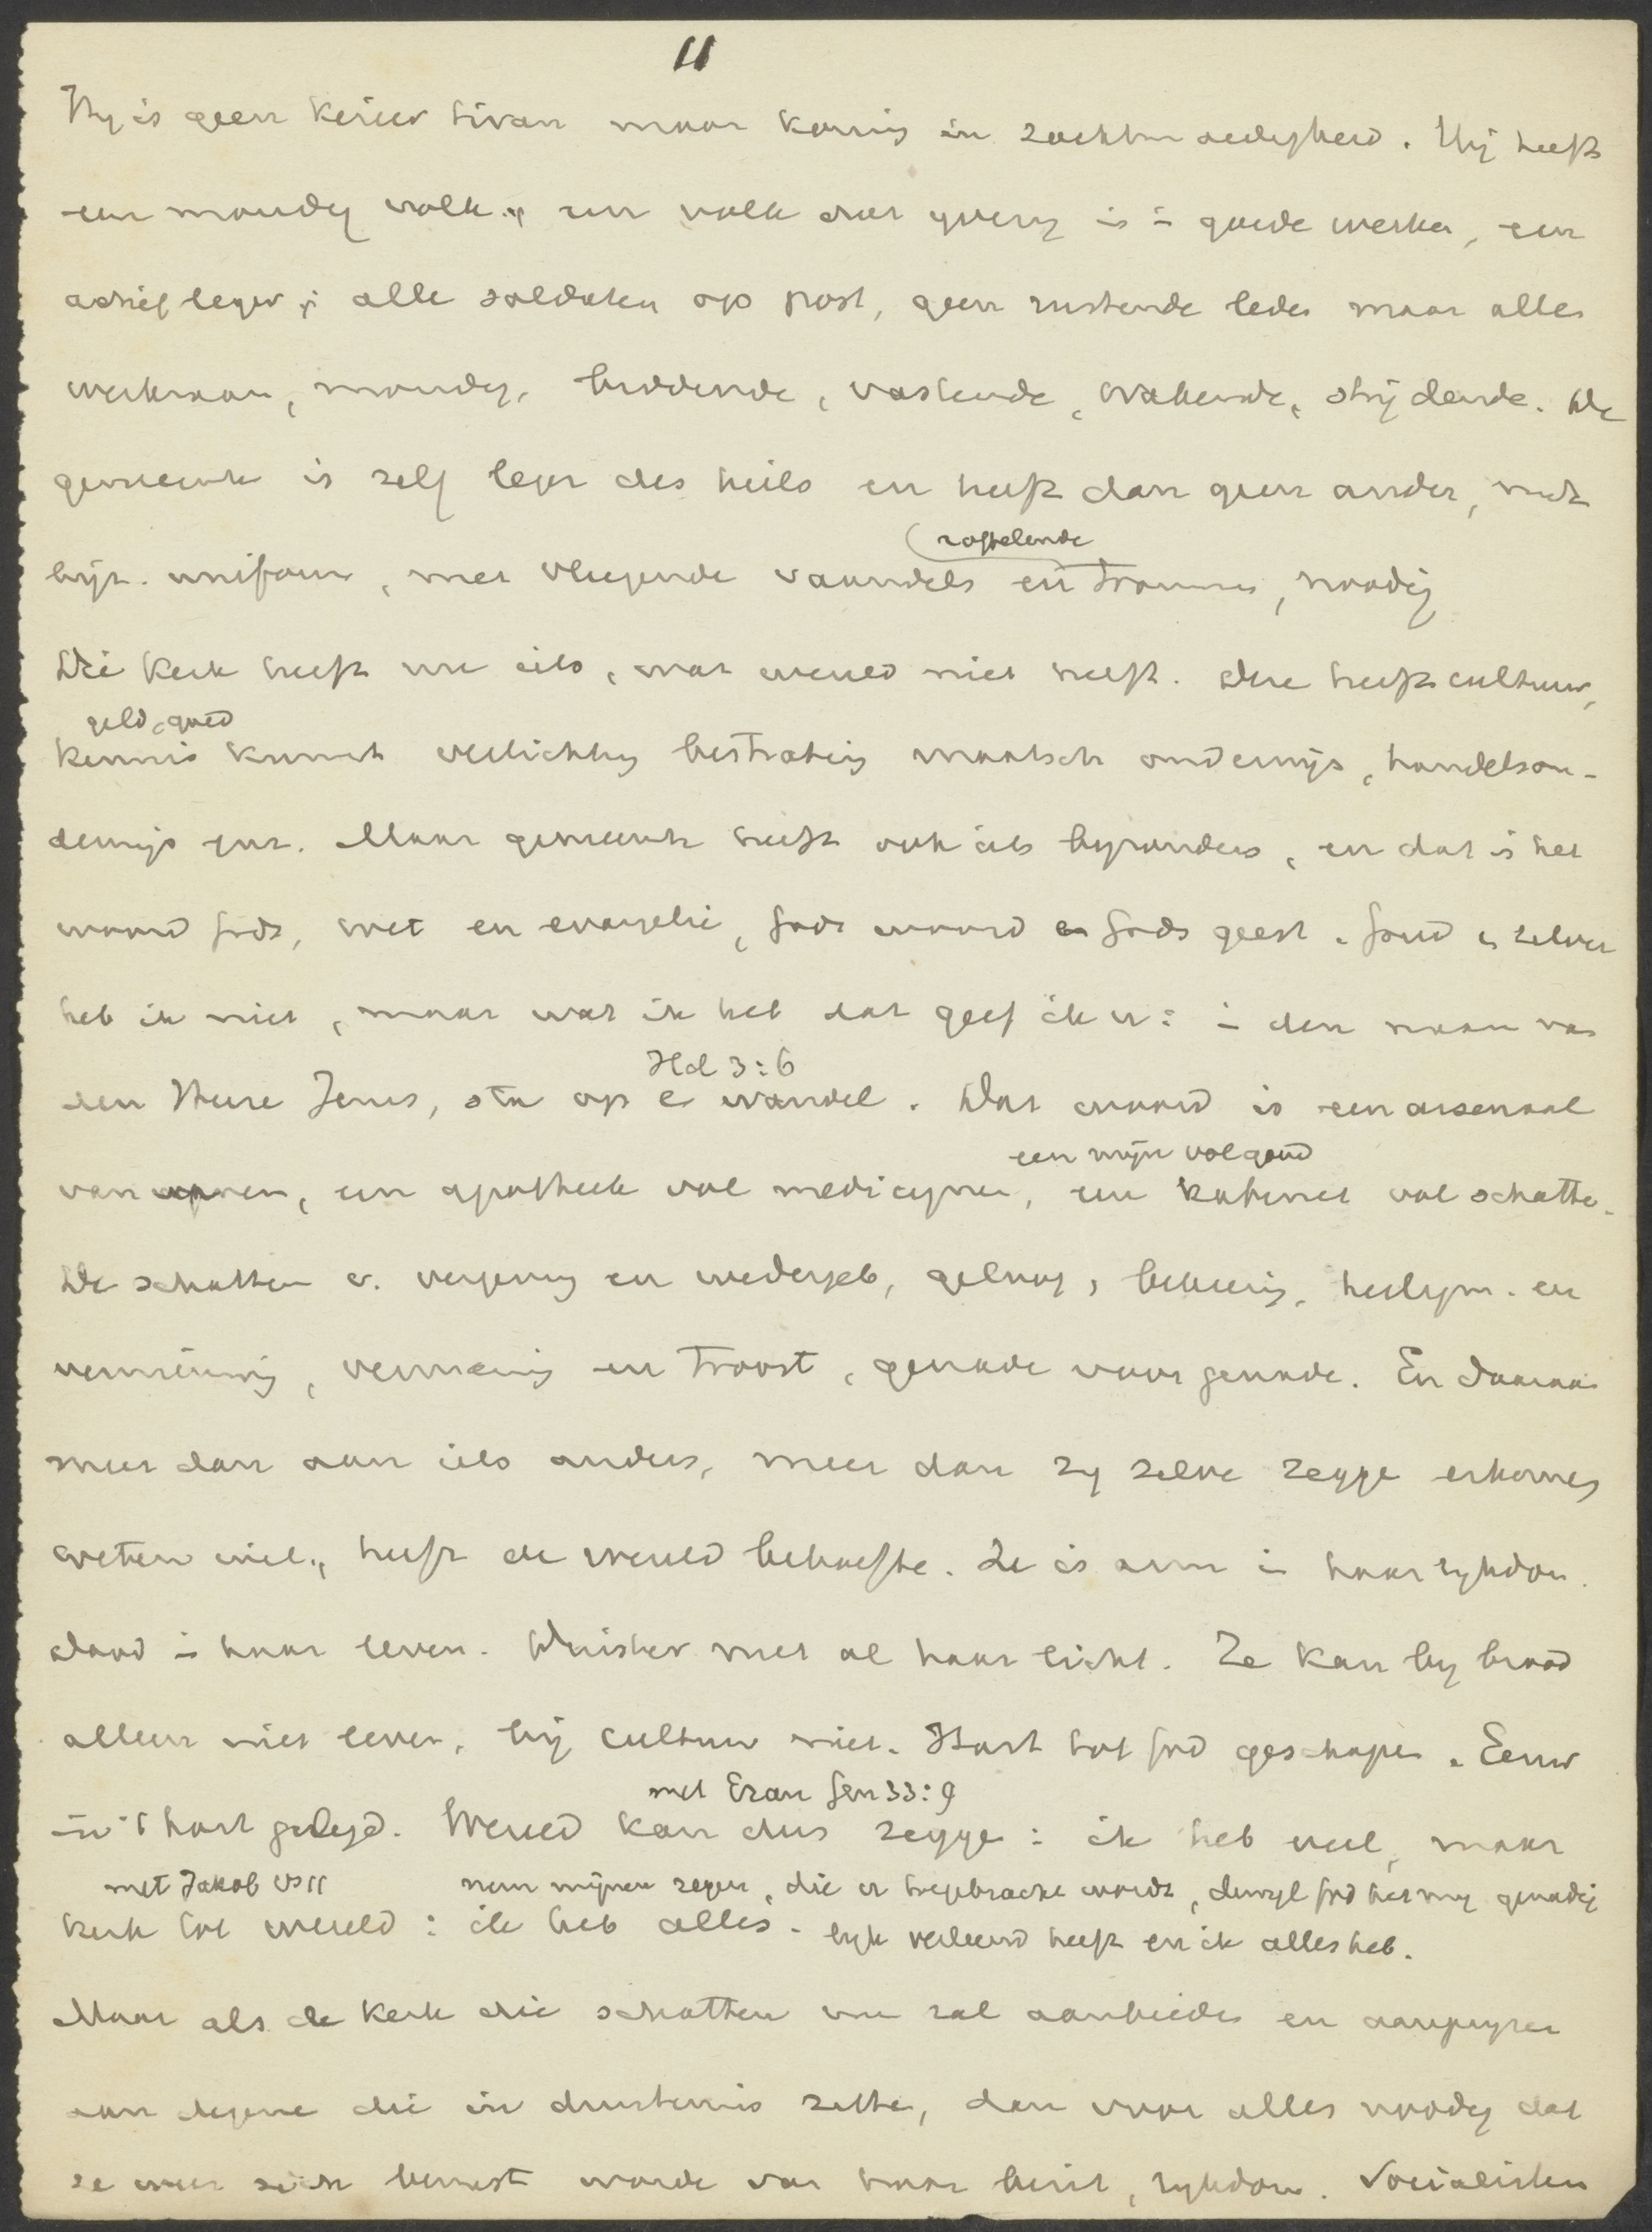 11
Hij is geen keizer tiran maar koning in zachtmoedigheid. Hij heeft
een mondig volk, een volk dat yverig is i goede werken, een
actief leger, alle soldaten op post, geen rustende leden maar alles
werkman, mondig, biddende, vastende, wakende, strijdende. De
gemeente is zelf leger des heils en heeft dan geen ander, met
ratelende
byz. uniform, met vliegende vaandels en trommes, noodig
Die kerk heeft nu iets, wat wereld niet heeft. Deze heeft cultuur,
geld, goed
kennis kunst verlichting bestrating maatsch onderwijs, handelson-
derwijs enz. Maar gemeente heeft ook iets byzonders, en dat is het
woord Gods, wet en evangelie, Gods woord en Gods geest. Goud en zilver
heb ik niet, maar wat ik heb dat geef ik u: i den naam van
Hd 3:6
den Heere Jezus, sta op e wandel. Dat woord is een arsenaal
een mijn vol goud
van wapenen, een apotheek vol medicynen, een kabinet vol schatten.
De schatten v. vergeving en wedergeb, geloof, bekeering, heiligm. en
vernieuwing, vermaning en troost, genade voor genade. En daaraan
meer dan aan iets anders, meer dan zy zelve zegge erkennen
weten wil, heeft de wereld behoefte. Ze is arm in haar rykdom.
dood in haar leven. Duister met al haar licht. Ze kan by brood
alleen niet leven, bij cultuur niet. Hart tot God geschapen. Eeuw
in 't hart gelegd. Wereld kan dus zegge: ik heb veel, maar
met Ezau Gen 33:9
met Jakob vs 11
kerk tot wereld: ik heb alles.
neem mijnen zegen, die u toegebracht wordt, dewyl God het my genadig
lyk verleend heeft en ik alles heb.
Maar als de kerk die schatten nu zal aanbieden en aanpryzen
aan degene die in duisternis zitten, dan voor alles noodig dat
ze weer zich bewust worde van haar bezit, rykdom. Socialisten